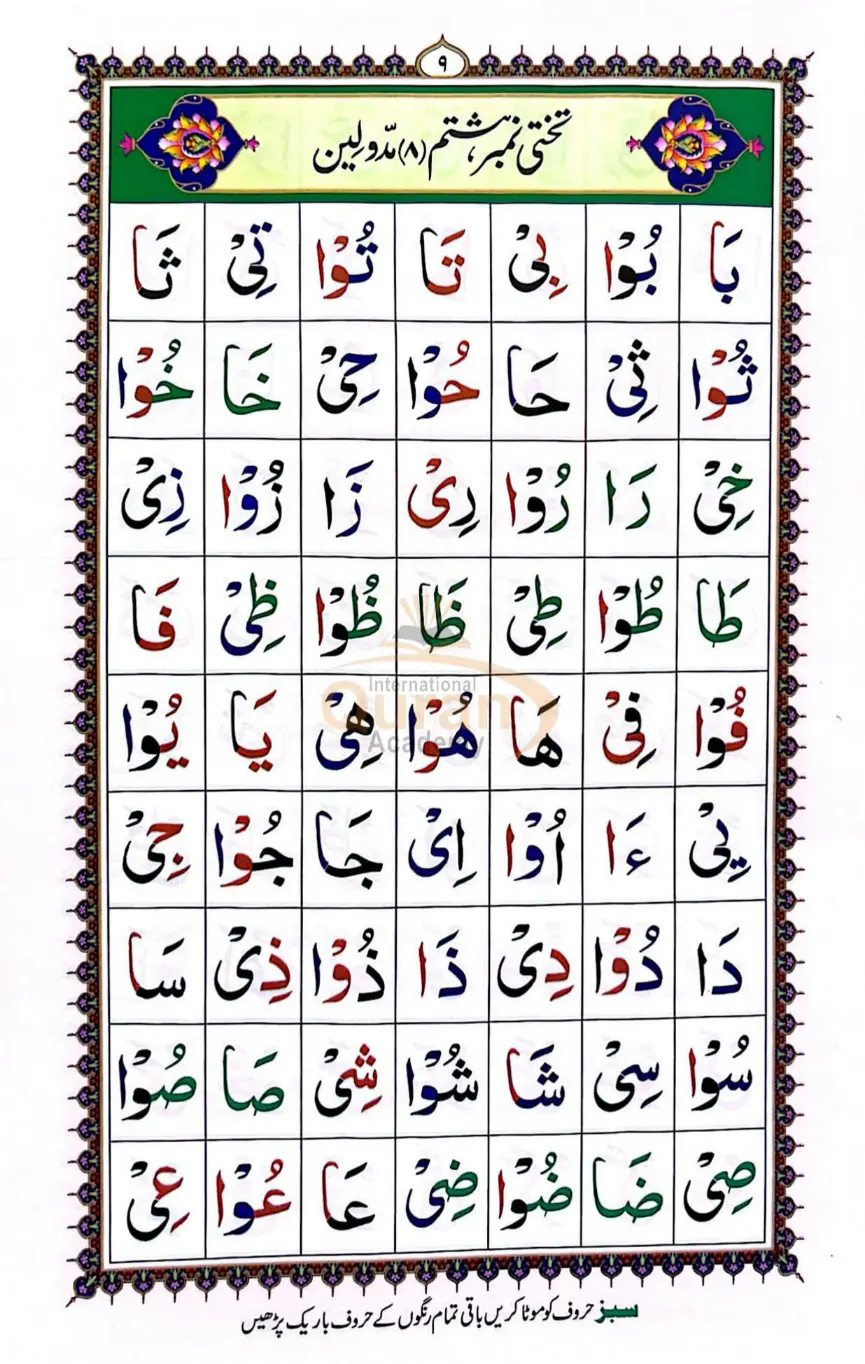 ۹
تختی نمبر ہشتم (۸) مدّ و لین
بَا بُوْا بِىْ تَا تُوْا تِىْ ثَا
ثُوْا ثِىْ حَا حُوْا حِىْ خَا خُوْا
خِىْ رَا رُوْا رِىْ زَا زُوْا زِىْ
طَا طُوْا طِىْ ظَا ظُوْا ظِىْ فَا
فُوْا فِىْ هَا هُوْا هِىْ يَا يُوْا
يِىْ ءَا اُوْا اِىْ جَا جُوْا جِىْ
دَا دُوْا دِىْ ذَا ذُوْا ذِىْ سَا
سُوْا سِىْ شَا شُوْا شِىْ صَا صُوْا
صِىْ ضَا ضُوْا ضِىْ عَا عُوْا عِىْ
سبز حروف کو موٹا کریں باقی تمام رنگوں کے حروف باریک پڑھیں
International
Quran
Academy